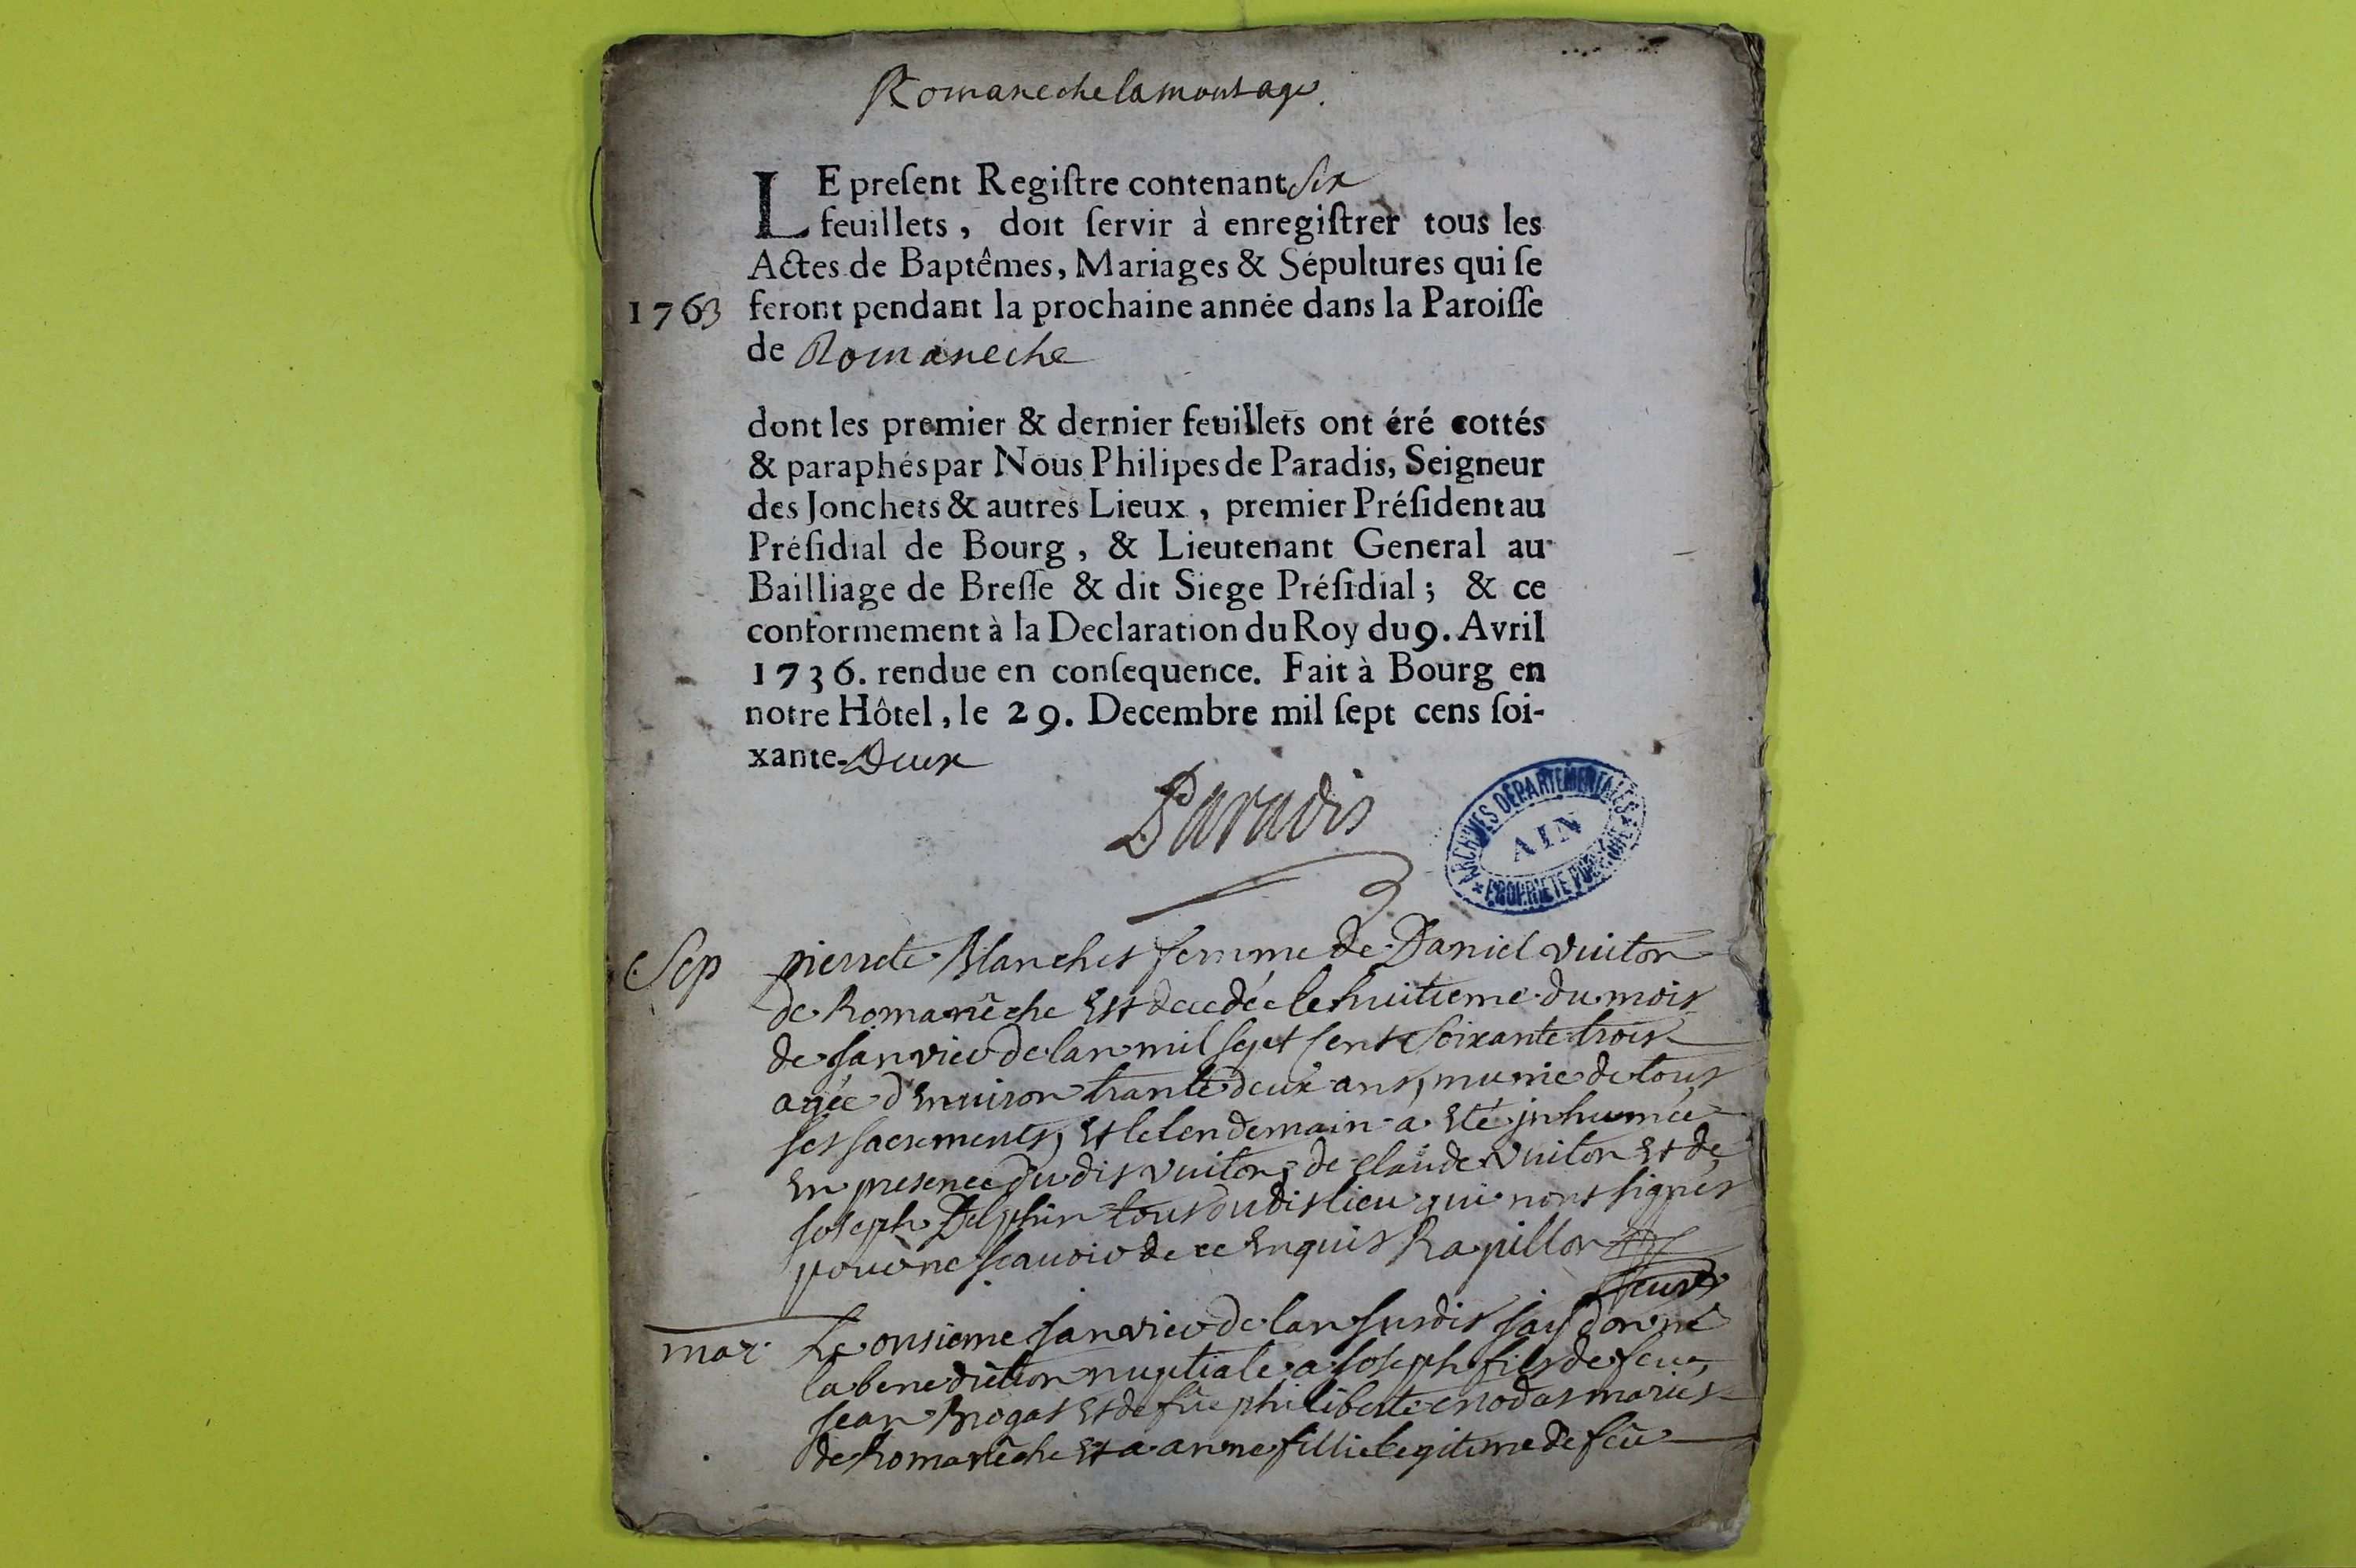 Romaneche lamontage.
LE preſent Regiſtre contenant six
feuillets, doit ſervir à enregiſtrer tous les
Actes de Baptêmes, Mariages & Sépultures qui ſe
1763 feront pendant la prochaine année dans la Paroiſſe
de Romaneche
dont les premier & dernier feuillets ont éré cottés
& paraphés par Nous Philipes de Paradis, Seigneur
des Jonchets & autres Lieux, premier Préſident au
Préſidial de Bourg, & Lieutenant General au
Bailliage de Breſſe & dit Siege Préſidial; & ce
conformement à la Declaration du Roy du 9. Avril
1736. rendue en conſequence. Fait à Bourg en
notre Hôtel, le 29. Decembre mil ſept cens ſoi-
xante-Deux
Paradis
ARCHIVES DÉPARTEMENTALES
AIN
* PROPRIÉTÉ PUBLIQUE *
Sep pierrete Blanchet femme de Daniel vuiton
de Romanêche Est decedée le huitieme du mois
de janvier de lan mil sept sent soixante trois
agée d'Environ trante deux ans, munie de tous
ses sacrements, Et le lendemain a Eté jnhumée
En presence du dit vuiton, de Claude vuiton Et de
joseph Delphin tous du dit lieu qui nont signés
pour ne scauoir de ce Enquis Rapillon
mar Le onsieme janvier de lan susdit jay donné
la benediction nuptiale a joseph fils de feu
jean Brogat Et de fûe philiberte enodas mariés
de Romanêche Et a anne fillie legitime de feû